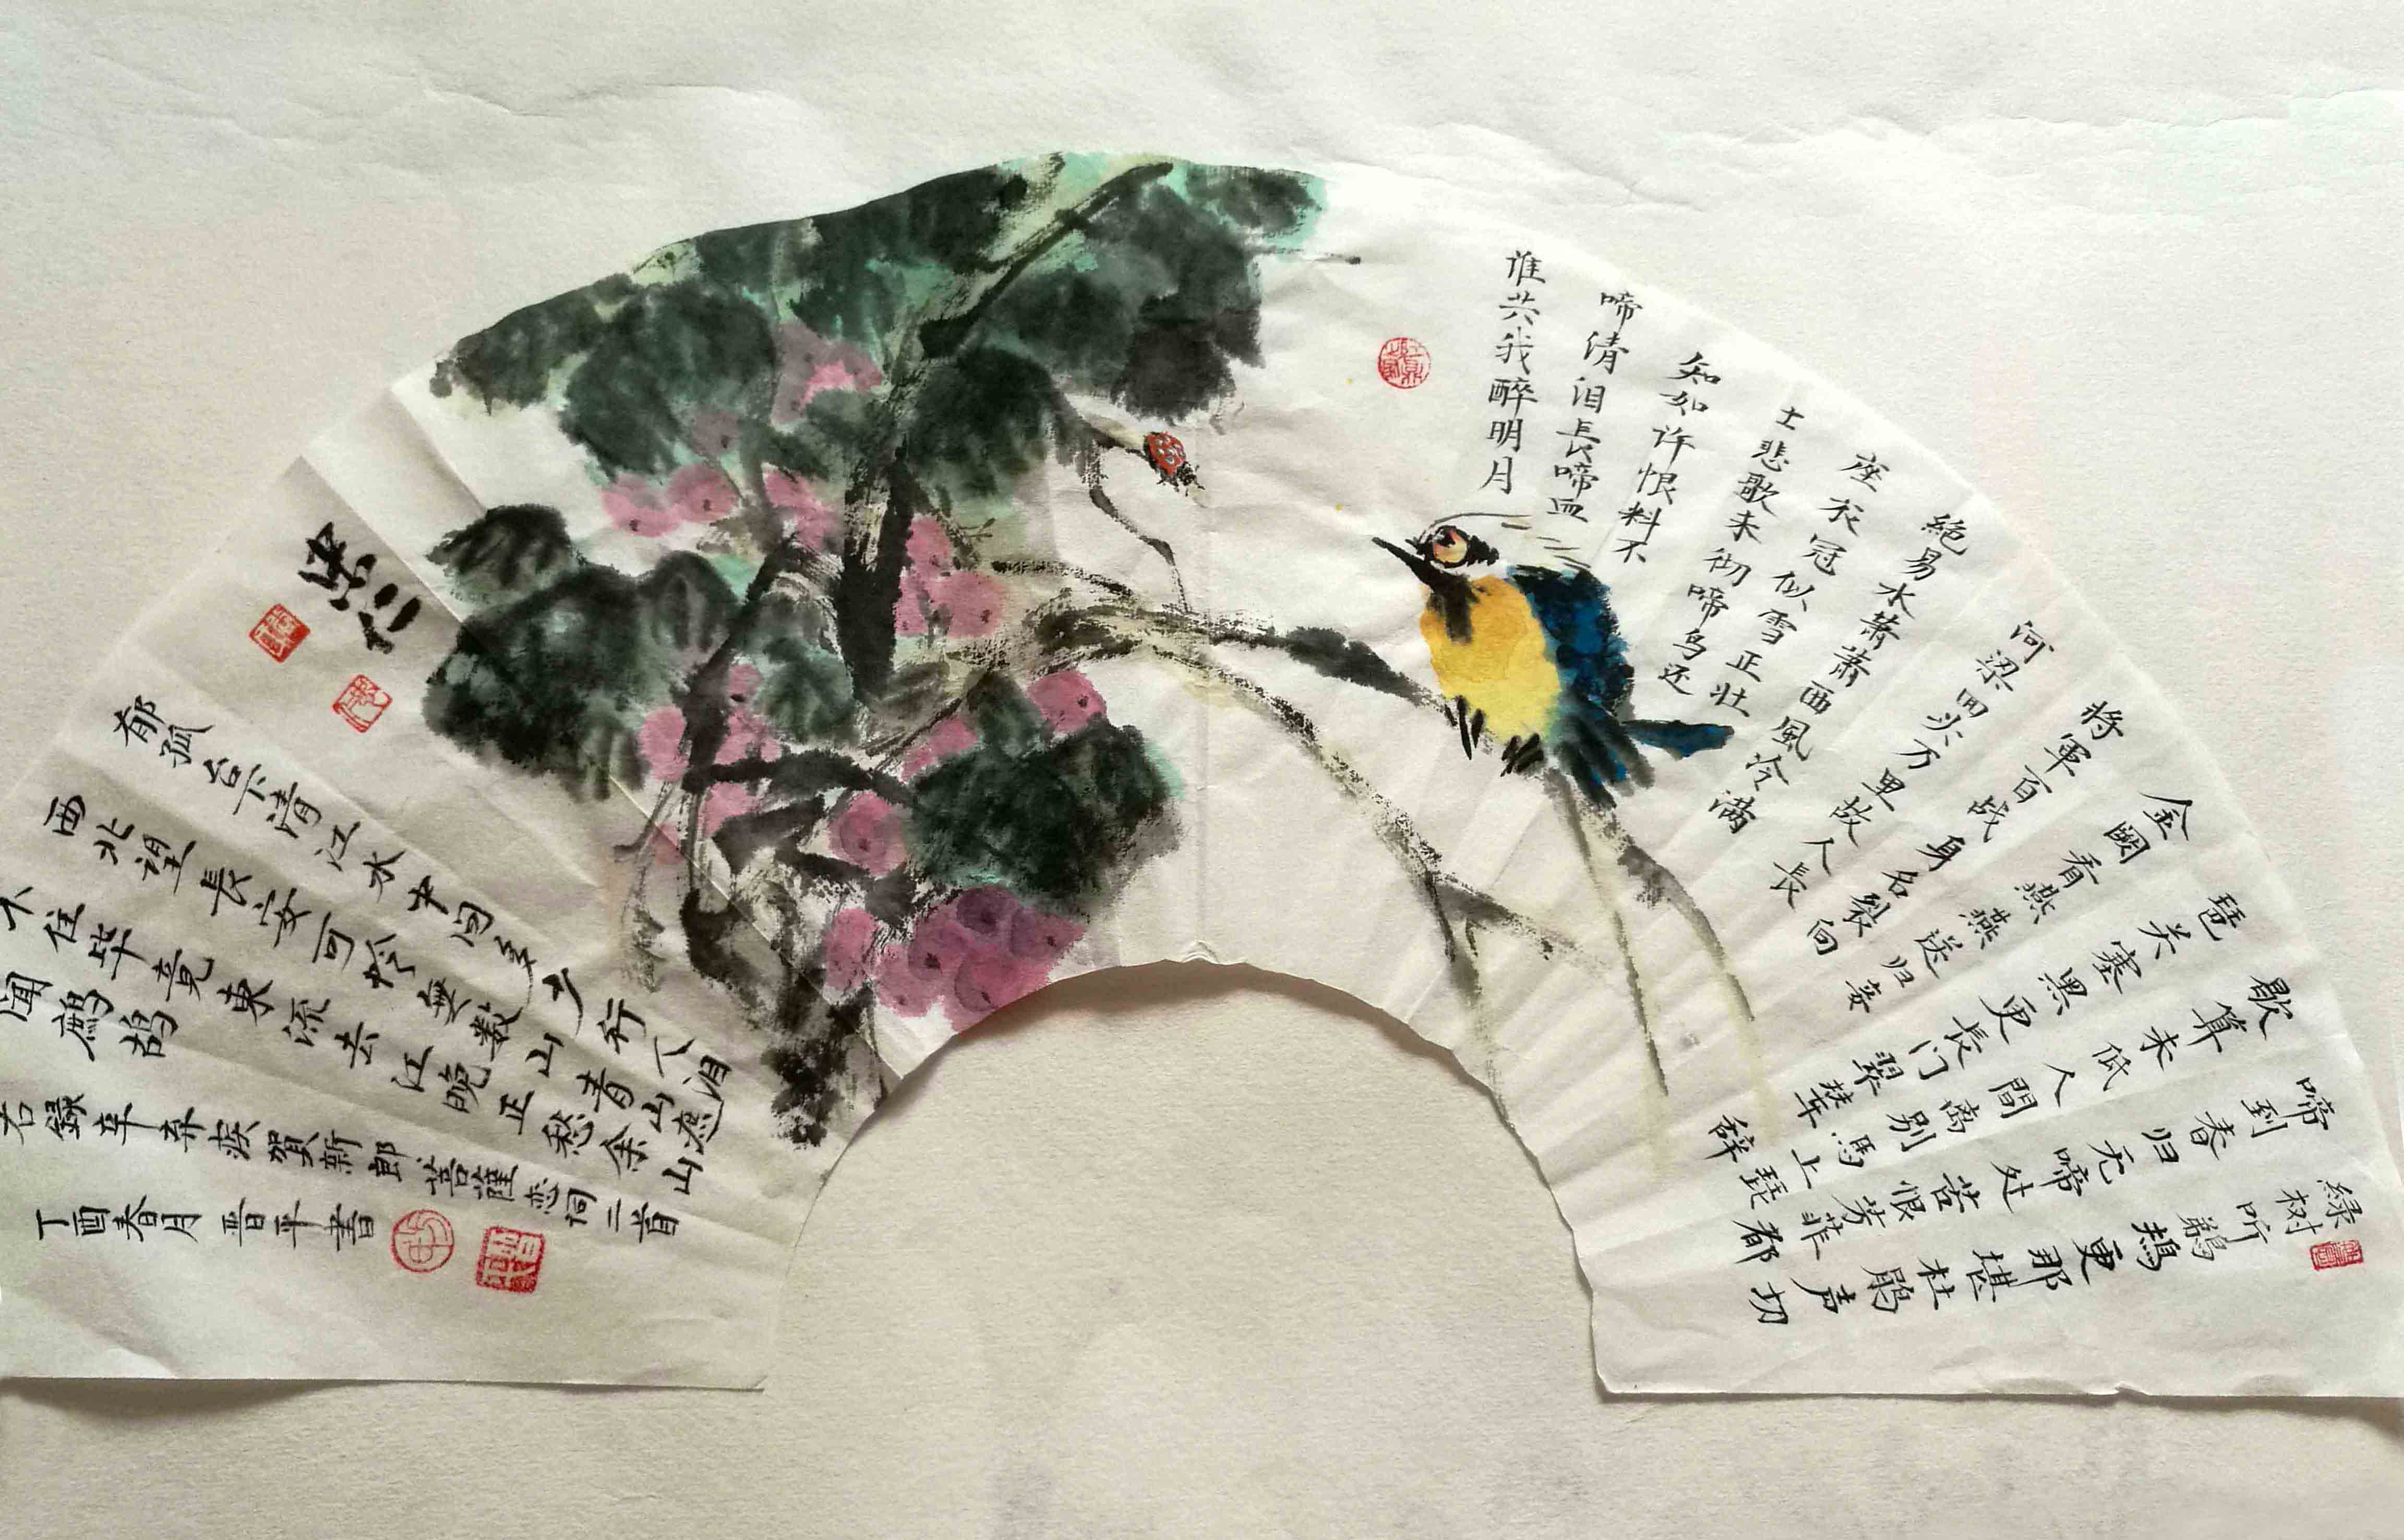 緑树听鵜鴂更那堪杜鹃声切
啼到春归无啼处苦恨芳菲都
歇算未低人間离别馬上琵
琶关塞黑更長门翠辇辞
金阙看燕燕送归妾
将軍百战身名裂向
河梁回头万里故人長
絶易水萧萧西風冷满
座衣冠似雪正壮
士悲歌未彻啼鸟还
知如许恨料不
啼清泪長啼血
谁共我醉明月
郁孤台下清江水中间多少行人泪
西北裡長安可怜無数山青山遮
不住毕竟東流去江晚正愁余山
闻鹧鸪
右録辛弃疾賀新郎菩薩恋词二首
丁酉春月晋平書